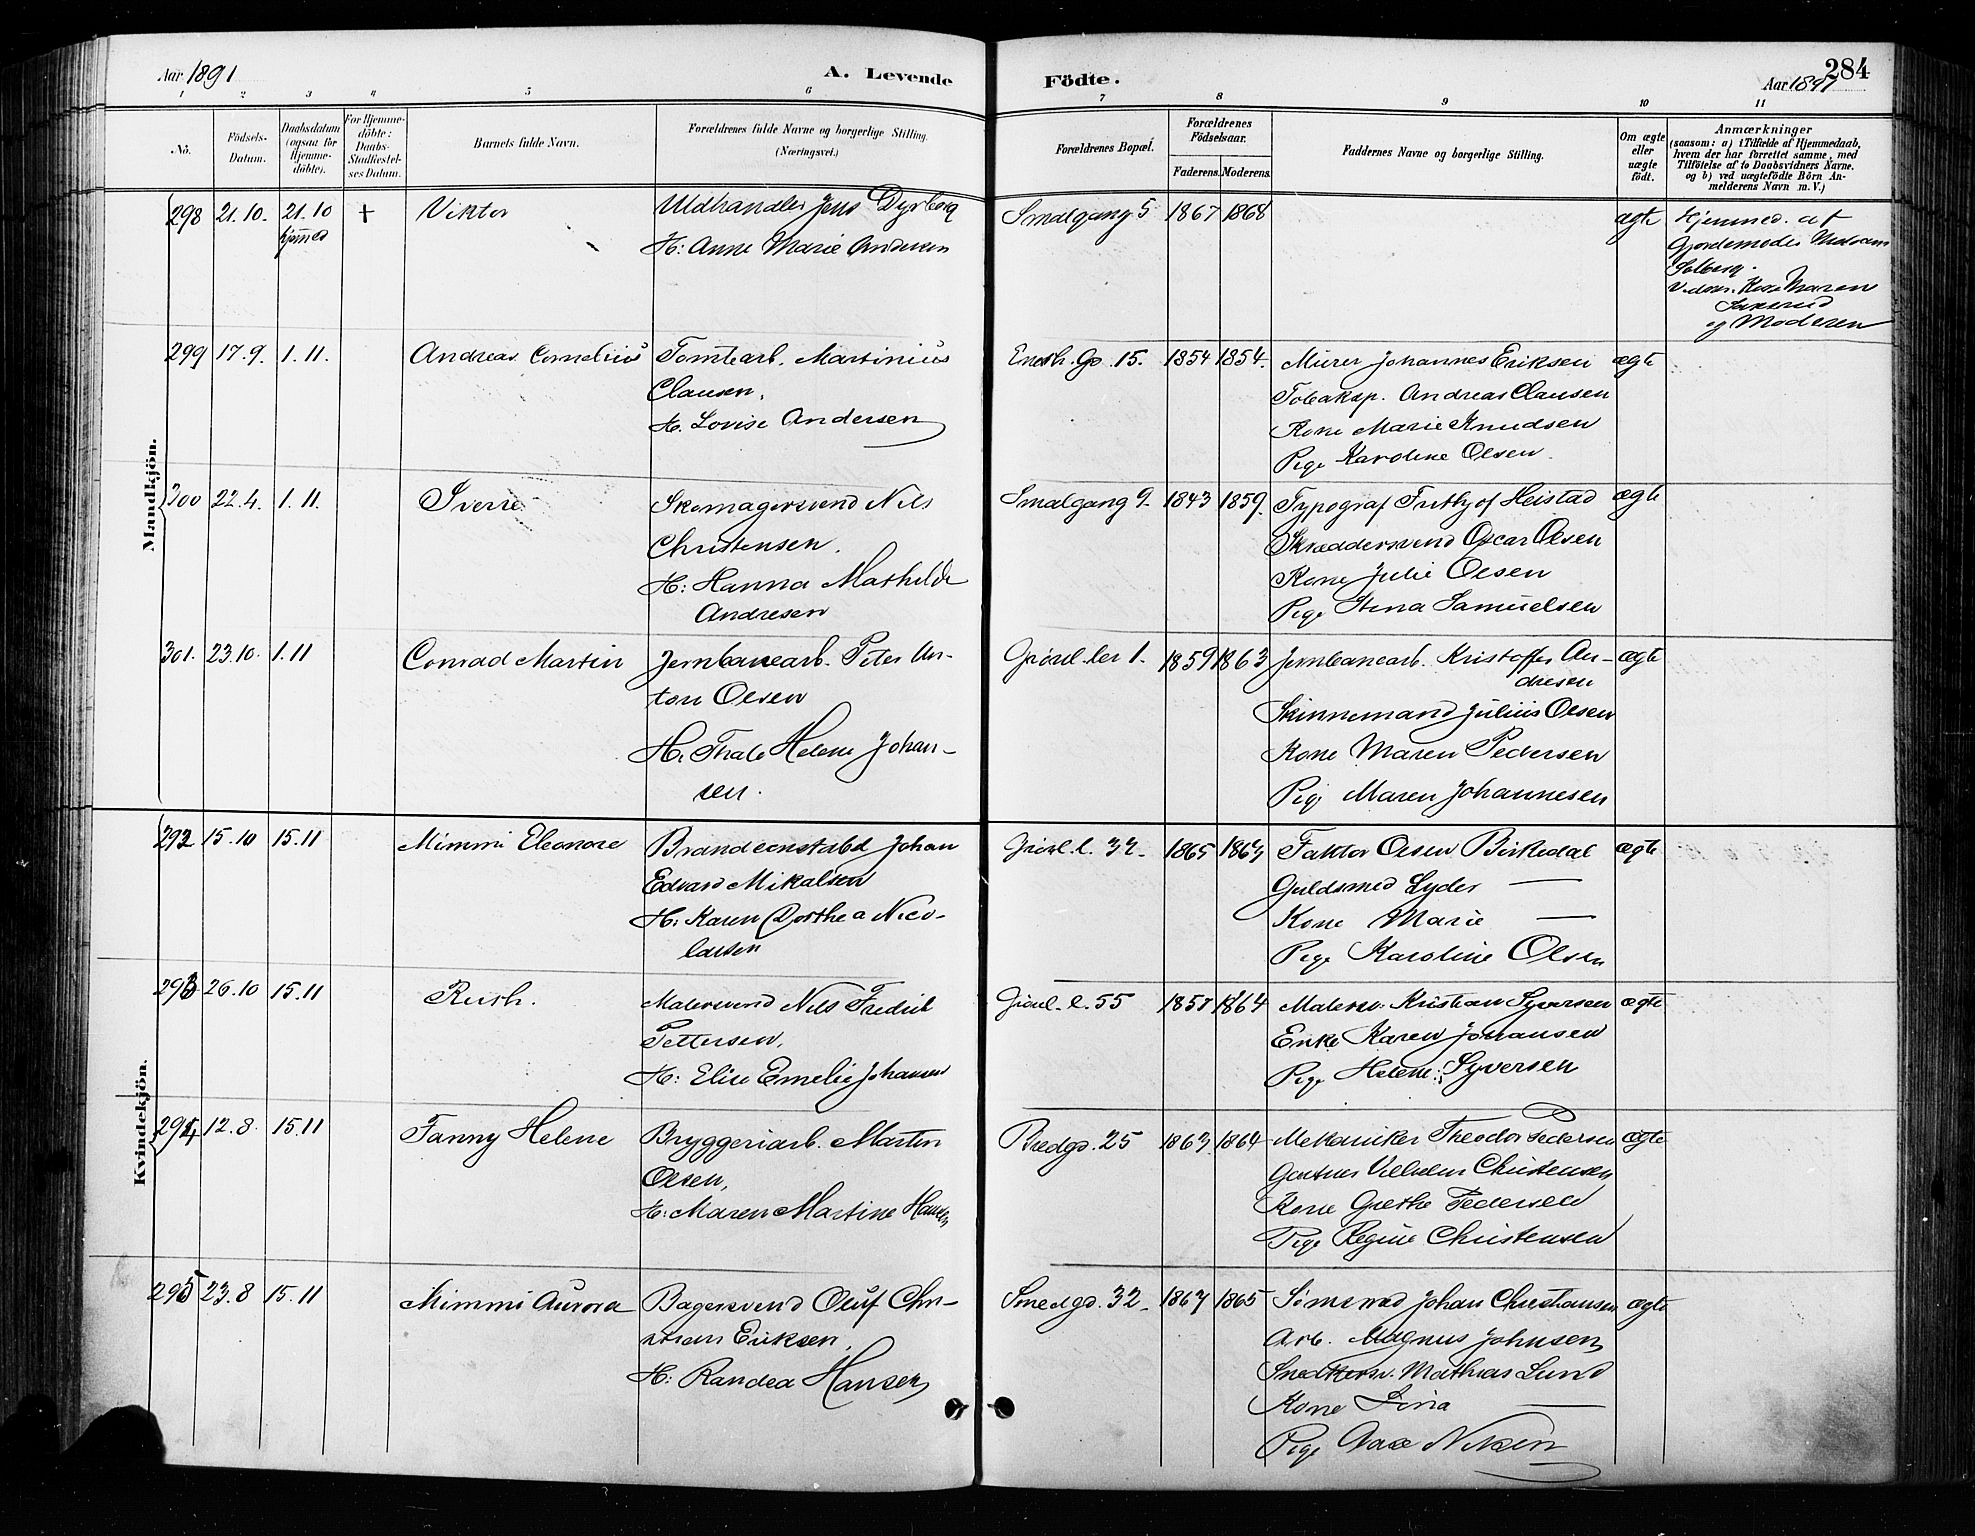 Aar 1891
A. Levende
Födte.
284
Aar 1891
1 2 3 4 5 6 7 8 9 10 11
No.
Födsels-
Datum.
Daabsdatum
(ogsaa for
Hjemme-
döbte).
For Hjemme-
döbte:
Daabs-
Stadfæstel-
ses Datum.
Barnets fulde Navn.
Forældrenes fulde Navne og borgerlige Stilling.
(Næringsvei.)
Forældrenes Bopæl.
Forældrenes
Födselsaar.
Faderens. Moderens.
Faddernes Navne og borgerlige Stilling.
Om ægte
eller
uægte
födt.
Anmærkninger
(saasom: a) i Tilfælde af Hjemmedaab,
hvem der har forrettet samme, med
Tilföielse af to Daabsvidners Navne.
og b) ved uægtefödte Börn An-
melderens Navn m. V.)
Mandkjön.
298 21.10. 21.10 + Viktor
hjemmed
Uldhandler Jens Dyrborg
H: Anne Marie Andersen
Smalgang 5 1867 1868 ægte
Hjemmed. af
Gjordemoder Madsam
Solberg.
Vidner: Kone Maren
og Moderen
299 17.9. 1.11. Andreas Cornelius
Tomtearb. Martinius
Clausen,
H. Lovise Andersen
Enebh. Gd. 15. 1854 1854.
Murer Johannes Eriksen
Tobaksp. Andreas Clausen
Kone Marie Knudsen
Pige Karoline Olsen.
ægte
300 22.4. 1.11. Sverre
Skomagersvend Nils
Christensen.
H: Hanna Mathilde
Andresen
Smalgang 9 1843 1859.
Typograf Frithjof Heistad
Skræddersvend Oscar Olsen
Kone Julie Olsen
Pige Stina Samuelsen
ægte
301. 23.10. 1.11 Conrad Martin
Jernbanearb. Peter An-
ton Olsen
H. Thale Helene Johan-
sen.
Grönl.ler 1. 1859 1863
Jernbanearb. Kristoffer An-
dresen
Skinnemand Julius Olsen
Kone Maren Pedersen
Pige Maren Johannesen
ægte
Kvindekjön.
292 15.10 15.11 Mimmi Eleonore
Brandconstabel Johan
Edvard Mikalsen
H: Karen Dorthea Nico-
laisen
Grönl. l. 32 1865 1863
Faktor Olsen Birkedal
Guldsmed Lyder —
Kone Marie —
Pige Karoline Olsen
ægte
293 26.10 15.11 Ruth.
Malersvend Nils Fredrik
Pettersen,
H: Elise Emelie Johansen
Grönl. l. 55 1857 1864
Malersv. Kristian Syversen
Enke Karen Johansen
Pige Helene Syversen
ægte
294 12.8. 15.11 Fanny Helene
Bryggeriarb. Martin
Olsen,
H: Maren Martine Hansen
Bredgd. 25 1863 1864
Mekaniker Theodor Pedersen
Gartner Vilhelm Christensen
Kone Grethe Pedersen
Pige Regine Christensen
ægte
295 23.8 15.11 Mimmi Aurora
Bagersvend Oluf Chri-
stian Eriksen,
H: Randea Hansen
Smedgd. 32 1867 1865
Sömand Johan Christiansen
Arb. Magnus Johnsen
Snedkersv. Mathias Lund
Kone Lina —
Pige Nilsen
ægte